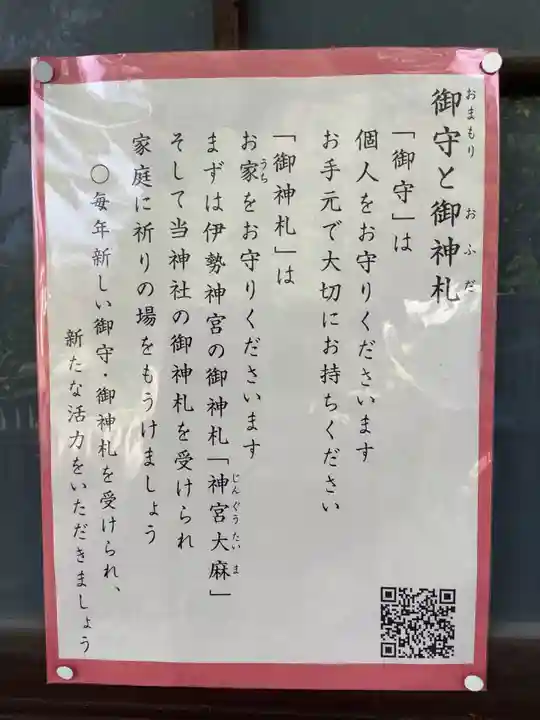 御守と御神札
おまもり おふだ
「御守」は
個人をお守りくださいます
お手元で大切にお持ちください
「御神札」は
お家をお守りくださいます
うち
まずは伊勢神宮の御神札「神宮大麻」
じんぐうたいま
そして当神社の御神札を受けられ
家庭に祈りの場をもうけましょう
○毎年新しい御守・御神札を受けられ、
新たな活力をいただきましょう